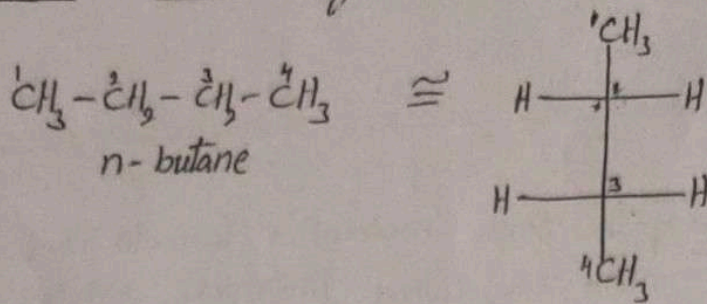 ¹CH₃-²CH₂-³CH₂-⁴CH₃ ≅
n-butane
¹CH₃
H H
H 3 H
⁴CH₃